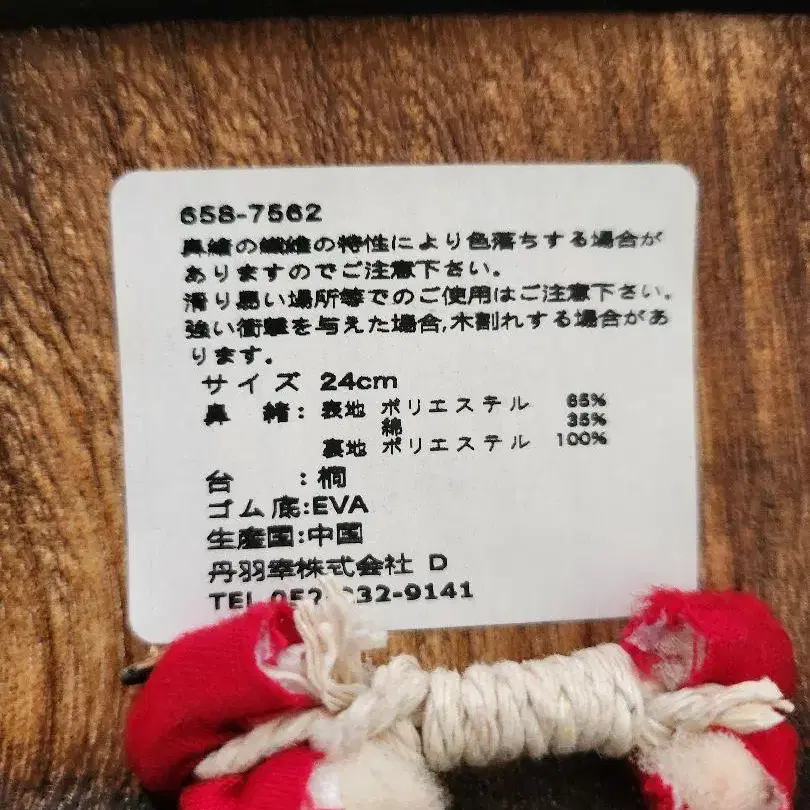 658-7562
鼻緒の繊維の特性により色落ちする場合が
ありますのでご注意下さい。
滑り悪い場所等でのご使用はご注意下さい。
強い衝撃を与えた場合,木割れする場合があ
ります。
サイズ 24cm
鼻 緒: 表地 ポリエステル 65%
綿 35%
裏地 ポリエステル 100%
台 : 桐
ゴム底:EVA
生産国:中国
丹羽幸株式会社 D
TEL 32-9141